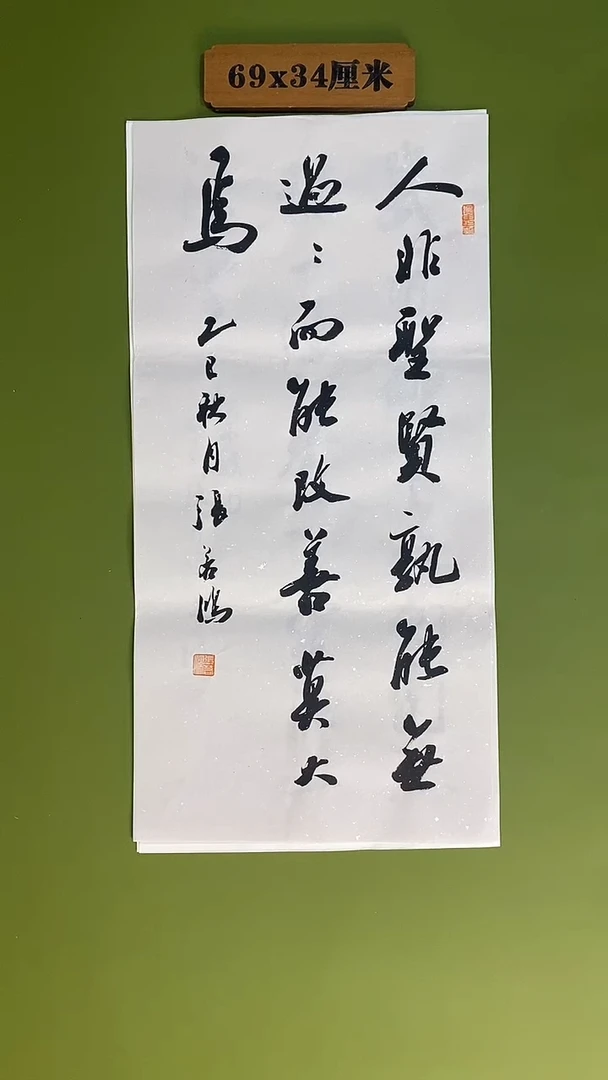 69x34厘米
人非聖賢孰能無
過〻而能改善莫大
焉
乙巳秋月張若鴻